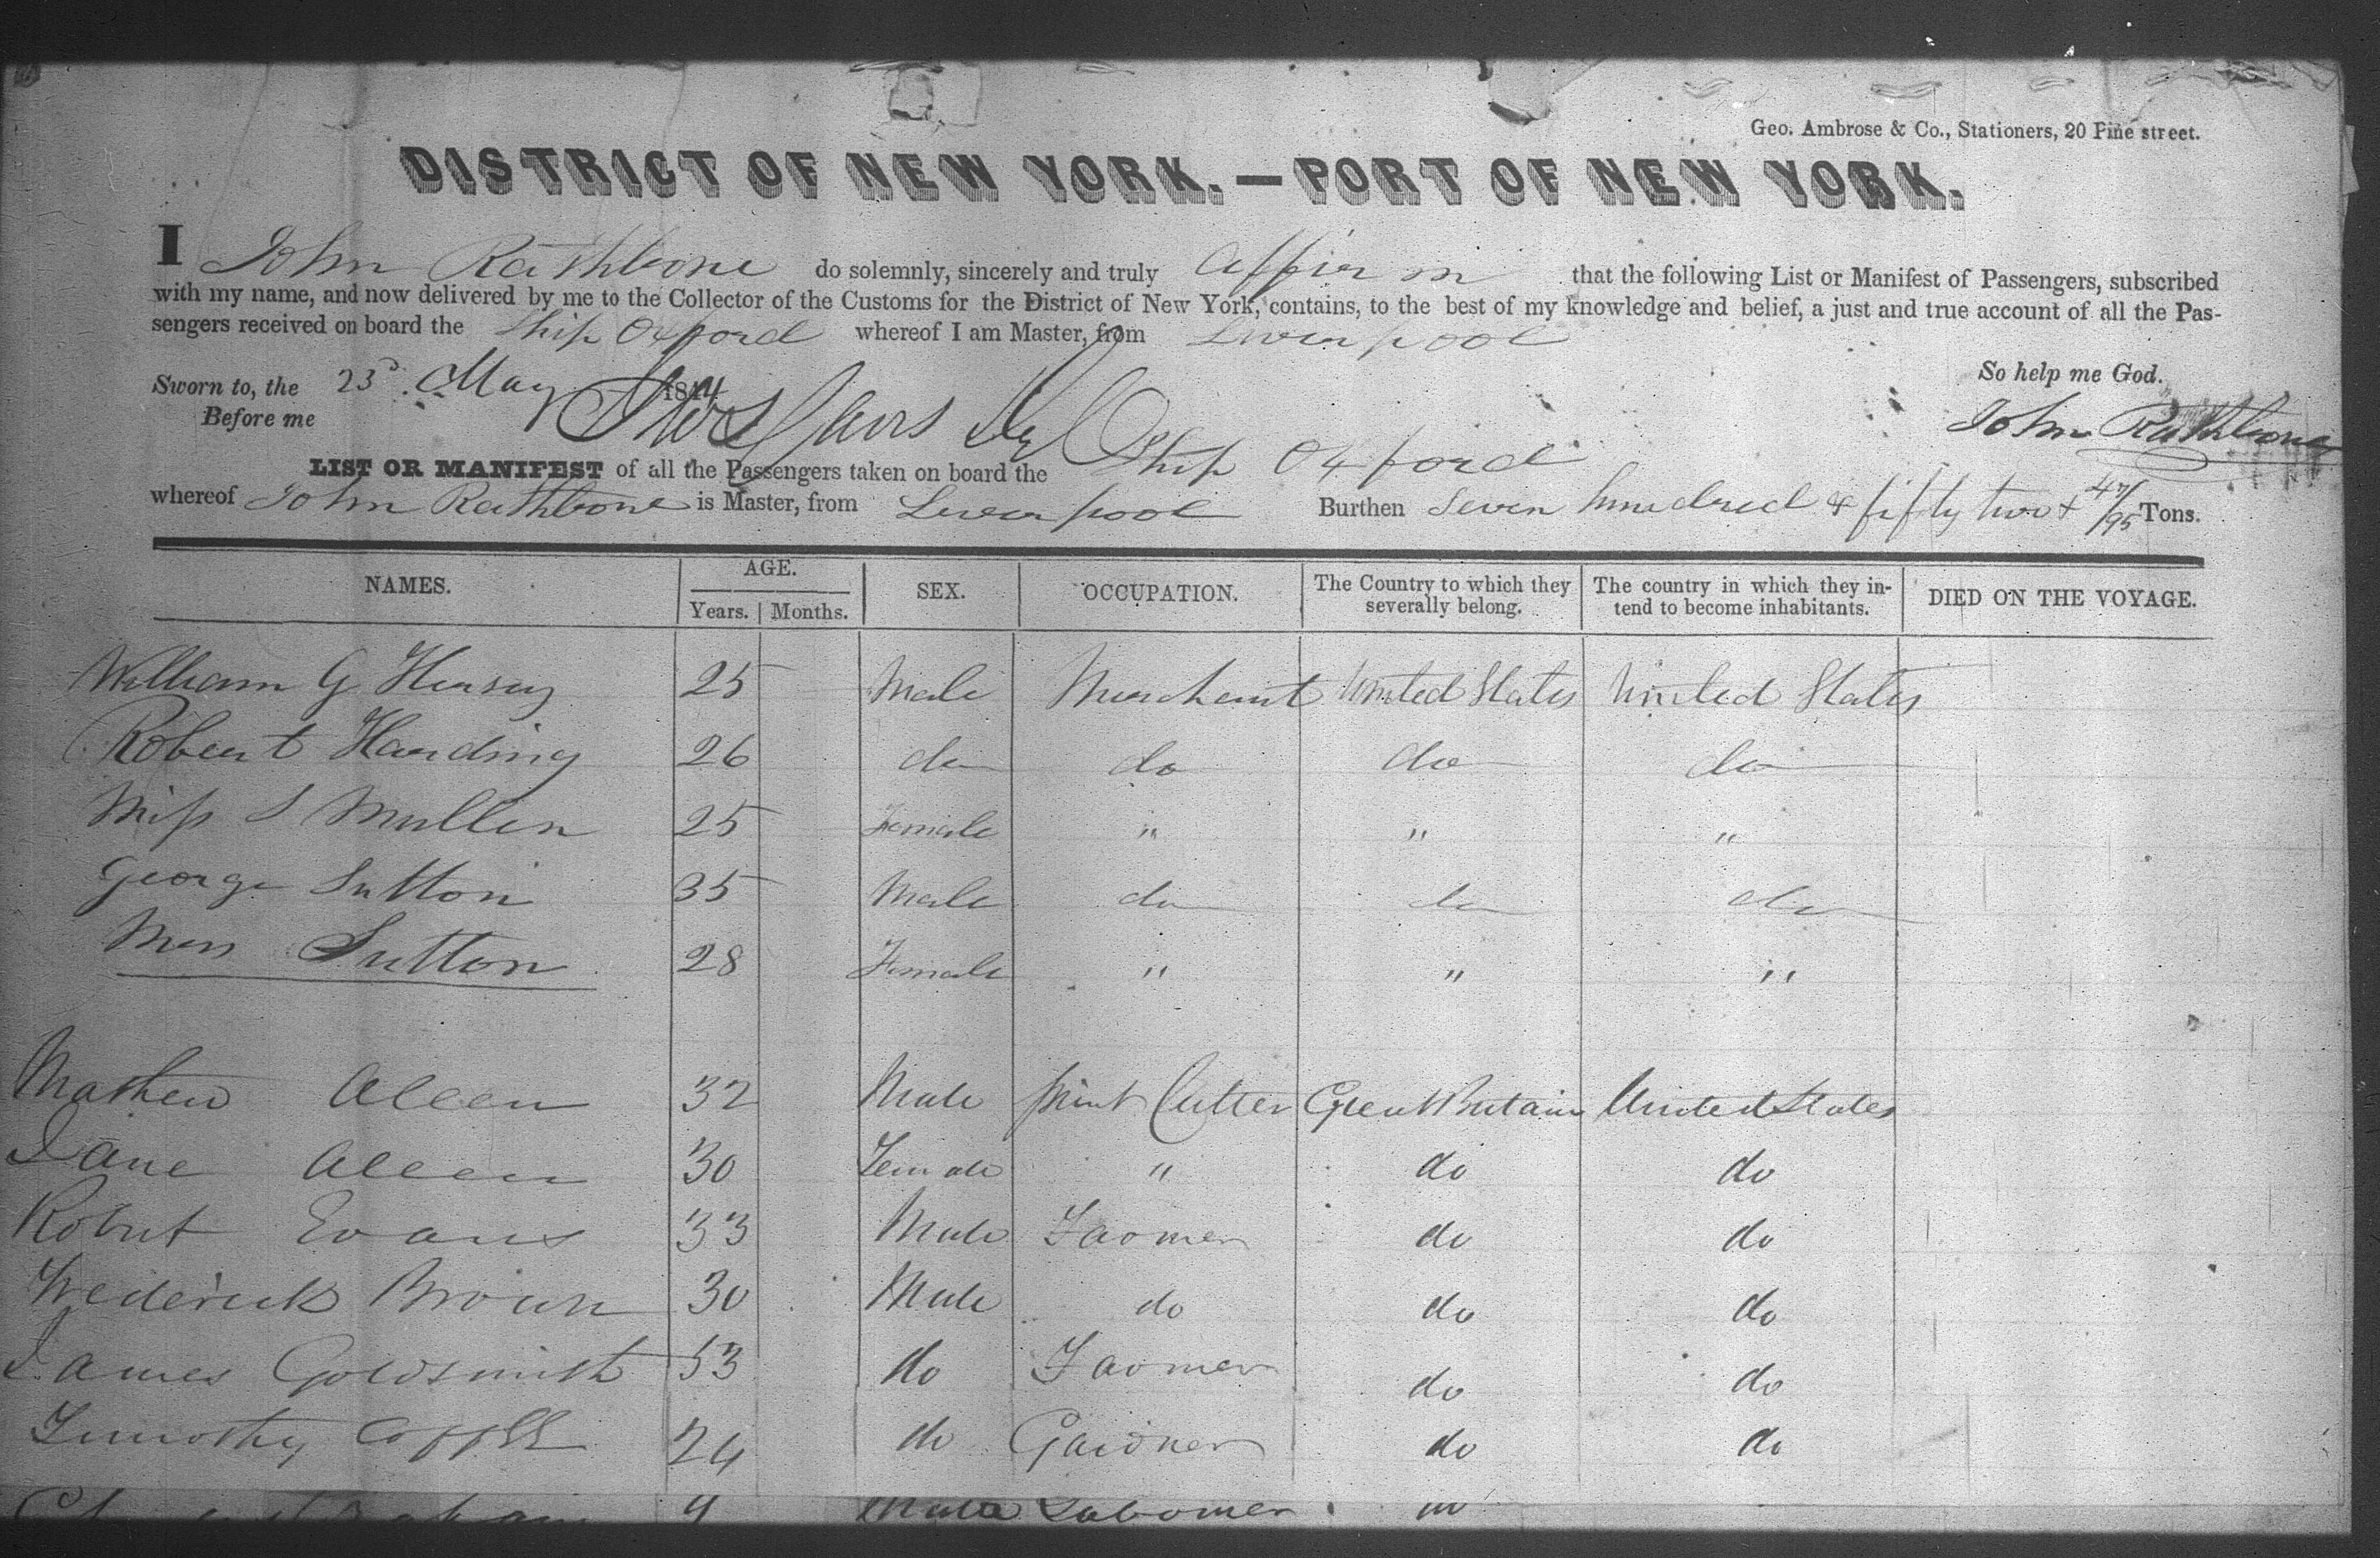 Geo. Ambrose & Co., Stationers, 20 Pine street.
DISTRICT OF NEW YORK.—PORT OF NEW YORK.
I John Rathbone do solemnly, sincerely and truly affirm that the following List or Manifest of Passengers, subscribed
with my name, and now delivered by me to the Collector of the Customs for the District of New York, contains, to the best of my knowledge and belief, a just and true account of all the Pas-
sengers received on board the Ship Oxford whereof I am Master, from Liverpool
So help me God.
Sworn to, the 23d. May 1844
Before me
John Rathbone
LIST OR MANIFEST of all the Passengers taken on board the Ship Oxford
whereof John Rathbone is Master, from Liverpool Burthen Seven hundred & fifty two & 47/95 Tons.
NAMES. AGE. SEX. OCCUPATION. The Country to which they severally belong. The country in which they in-tend to become inhabitants. DIED ON THE VOYAGE.
Years. Months.
William G 25 Male Merchant United States United States
Robert Harding 26 do do do do
Miss S Mullen 25 Female " " "
George Sutton 35 Male do do do
Mrs Sutton 28 Female " " "
Mathew Aleen 32 Male print Cutter Great Britain United States
Jane Aleen 30 Female " do do
Robert Evans 33 Male Farmer do do
Frederick Brown 30 Male do do do
James Goldsmith 53 do Farmer do do
Timothy 24 do Gardner do do
Male Labourer do